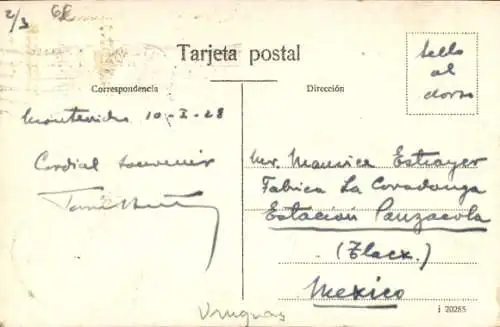 2/3
Tarjeta postal
sello
al
dorso
Correspondencia
Dirección
Montevideo 10-I-28
Cordial souvenir
Mr. Maurice Estrayer
Fabrica La Covadonga
Estación Panzacola
(Tlax.)
Mexico
Uruguay
i 20285